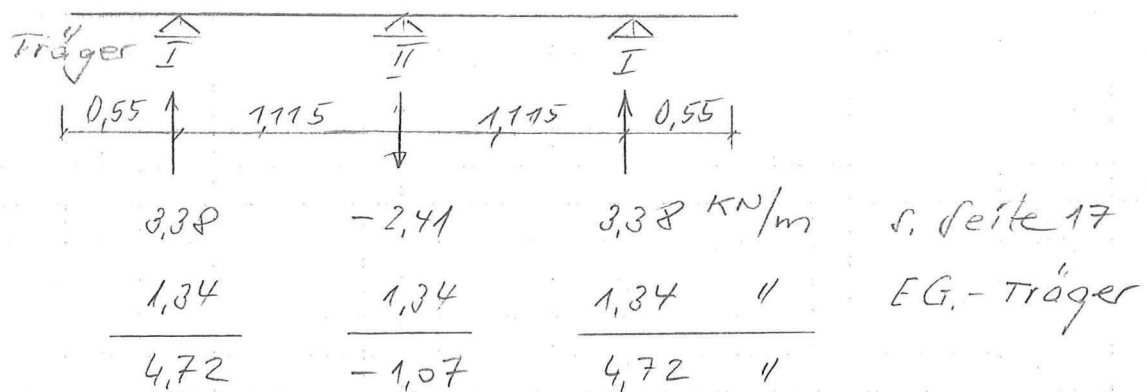 Träger I II I
0,55 1,115 1,115 0,55
3,38 -2,41 3,38 KN/m s. Seite 17
1,34 1,34 1,34 " EG.-Träger
4,72 -1,07 4,72 "